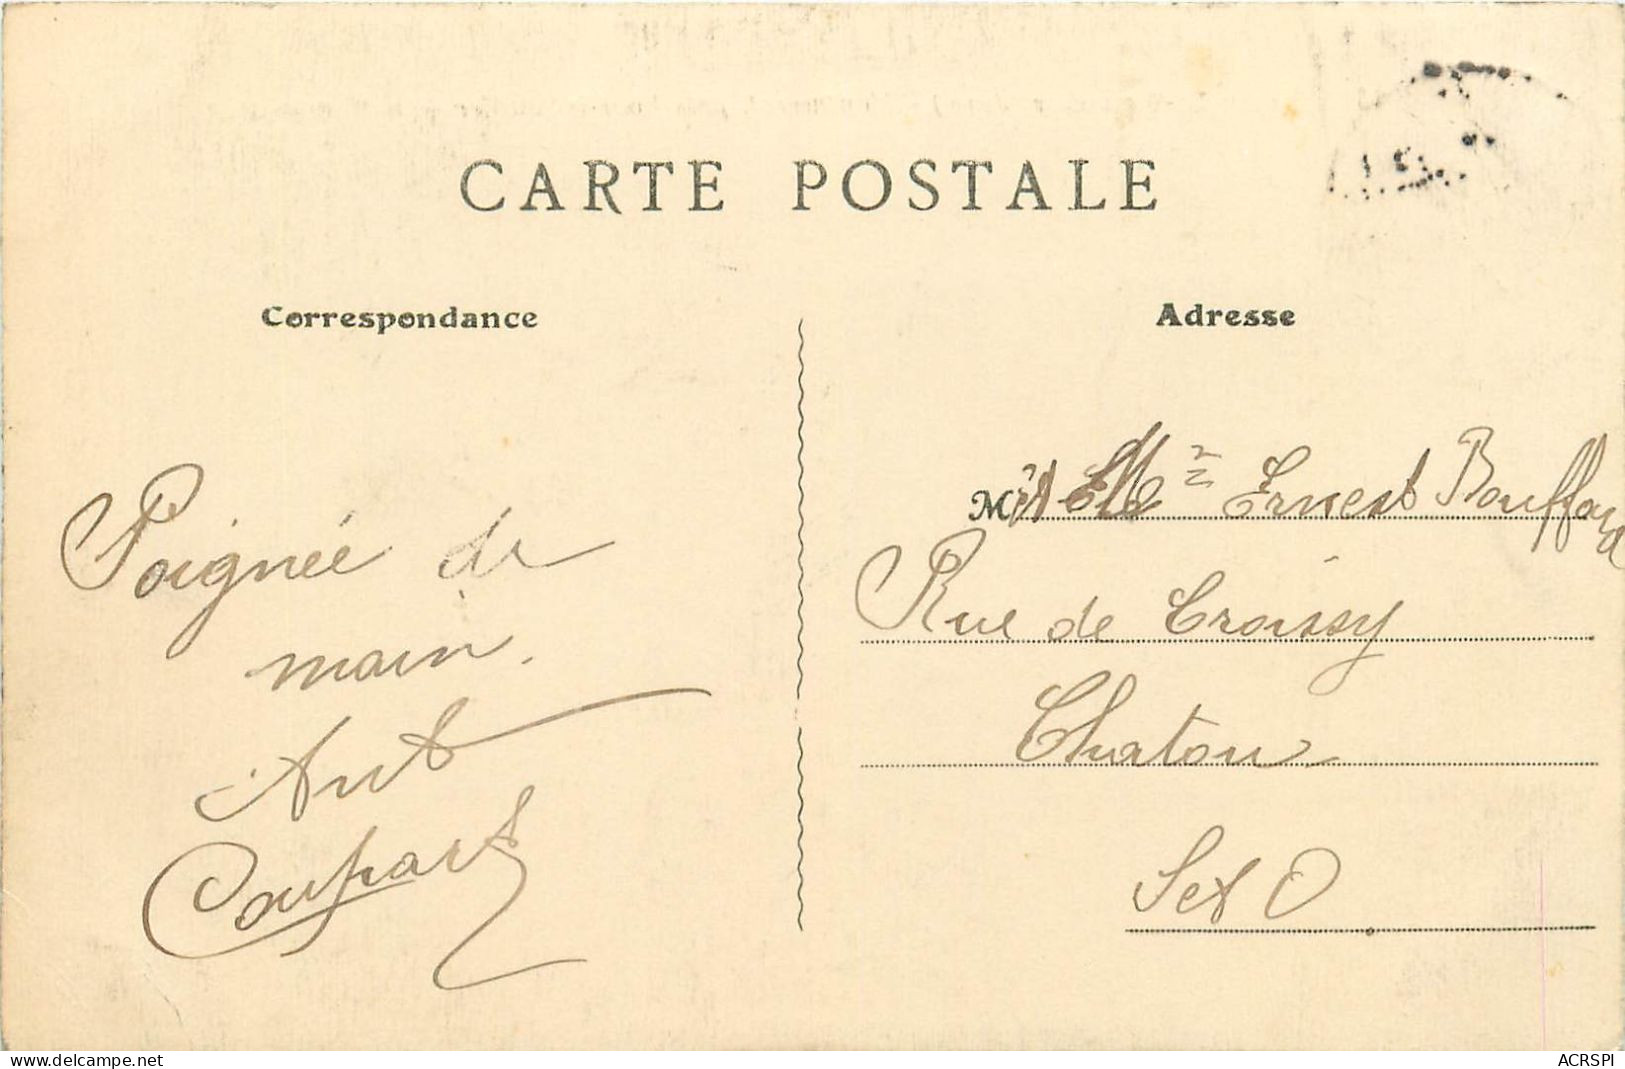 CARTE POSTALE
Correspondance
Adresse
Poignée de
main.
Ant
Coupart
M Ernest Bouffard
Rue de Croissy
Chatou
S et O
www.delcampe.net
ACRSPI